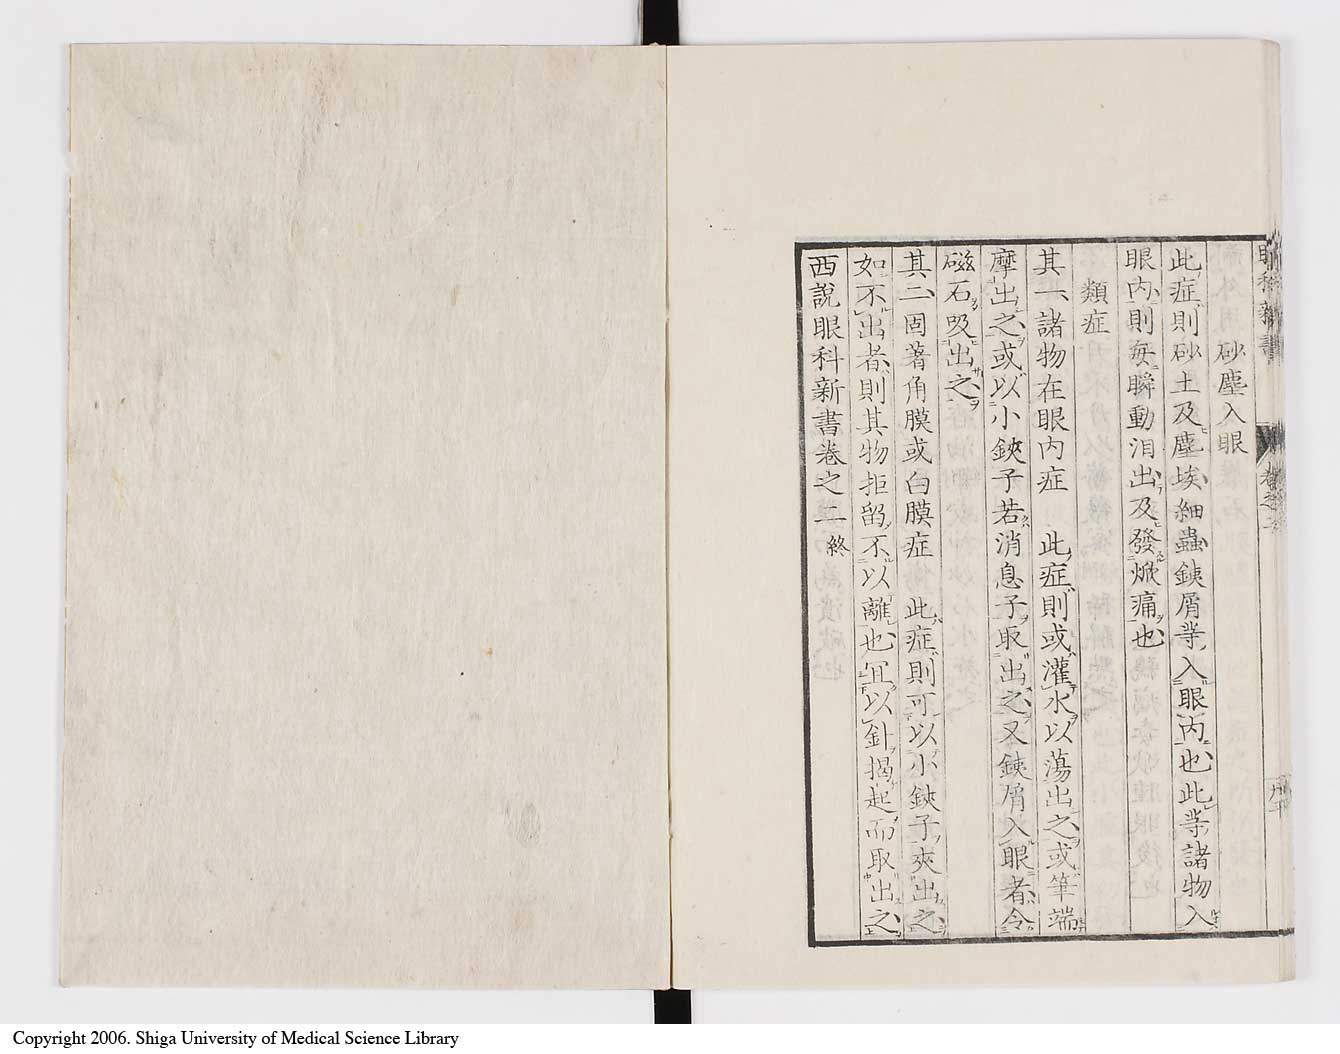 砂塵入眼
此症則砂土及塵埃細蟲鉄屑等入眼内也此等諸物入
眼内則每瞬動泪出及發焮痛也
類症
其一諸物在眼内症　此症則或灌水以蕩出之或筆端
摩出之或以小鋏子若消息子取出之又鉄屑入眼者令
磁石吸出之
其二固著角膜或白膜症　此症則可以小鋏子夾出之
如不出者則其物拒留不以離也冝以針揭起而取出之
西說眼科新書卷之二終
Copyright 2006. Shiga University of Medical Science Library